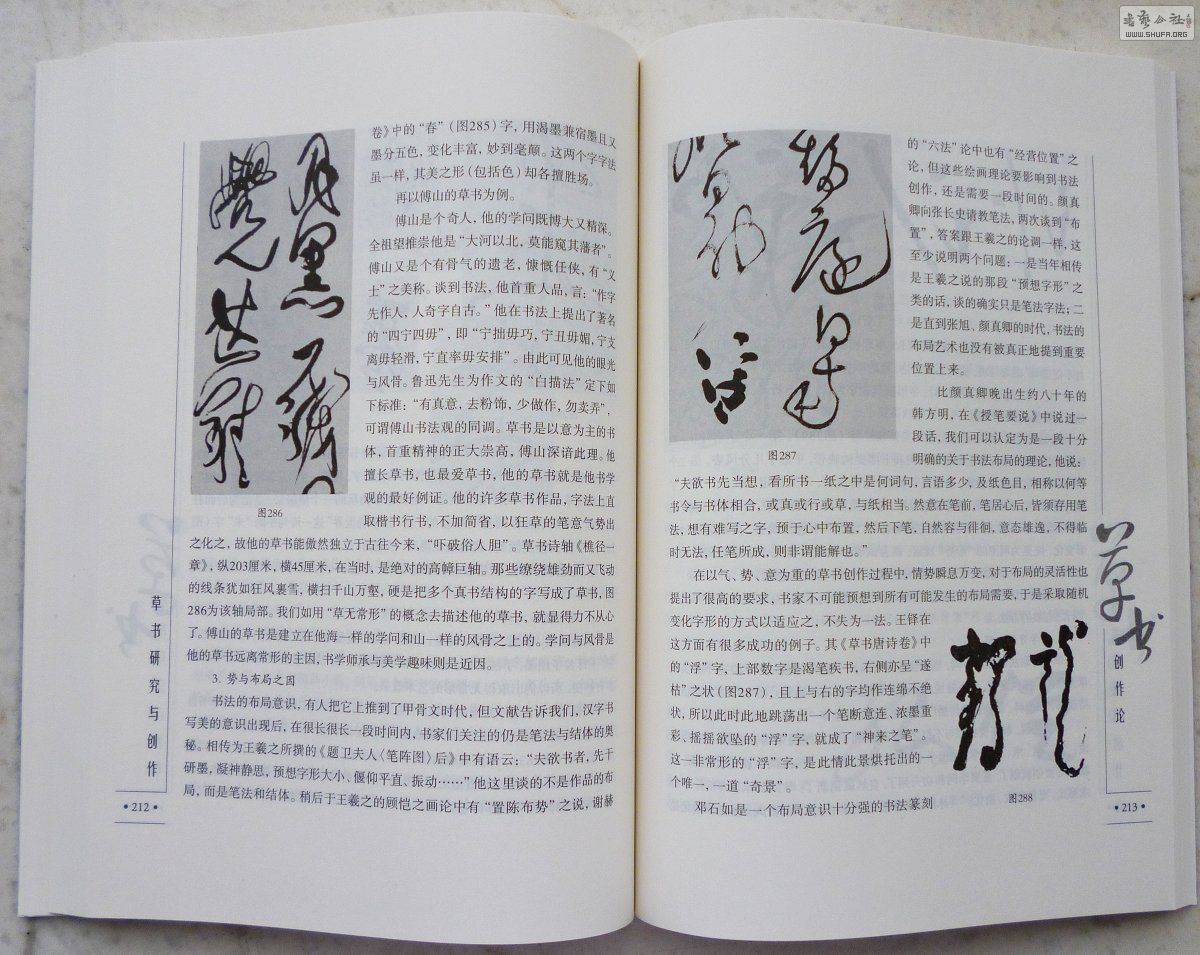 卷》中的“春”(图285)字，用渴墨兼宿墨且又
墨分五色，变化丰富，妙到毫颠。这两个字字法
虽一样，其美之形(包括色)却各擅胜场。
再以傅山的草书为例。
傅山是个奇人，他的学问既博大又精深。
全祖望推崇他是“大河以北，莫能窥其藩者”。
傅山又是个有骨气的遗老，慷慨任侠，有“义
士”之美称。谈到书法，他首重人品，言：“作字
先作人，人奇字自古。”他在书法上提出了著名
的“四宁四毋”，即“宁拙毋巧，宁丑毋媚，宁支
离毋轻滑，宁直率毋安排”。由此可见他的眼光
与风骨。鲁迅先生为作文的“白描法”定下如
下标准：“有真意，去粉饰，少做作，勿卖弄”，
可谓傅山书法观的同调。草书是以意为主的书
体，首重精神的正大崇高，傅山深谙此理。他
擅长草书，也最爱草书，他的草书就是他书学
观的最好例证。他的许多草书作品，字法上直
取楷书行书，不加简省，以狂草的笔意气势出
之化之，故他的草书能傲然独立于古往今来，“吓破俗人胆”。草书诗轴《樵径一
章》，纵203厘米，横45厘米，在当时，是绝对的高幛巨轴。那些缭绕雄劲而又飞动
的线条犹如狂风裹雪，横扫千山万壑，硬是把多个真书结构的字写成了草书，图
286为该轴局部。我们如用“草无常形”的概念去描述他的草书，就显得力不从心
了。傅山的草书是建立在他海一样的学问和山一样的风骨之上的。学问与风骨是
他的草书远离常形的主因，书学师承与美学趣味则是近因。
3. 势与布局之因
书法的布局意识，有人把它上推到了甲骨文时代，但文献告诉我们，汉字书
写美的意识出现后，在很长很长一段时间内，书家们关注的仍是笔法与结体的奥
秘。相传为王羲之所撰的《题卫夫人〈笔阵图〉后》中有语云：“夫欲书者，先干
研墨，凝神静思，预想字形大小、偃仰平直、振动……”他这里谈的不是作品的布
局，而是笔法和结体。稍后于王羲之的顾恺之画论中有“置陈布势”之说，谢赫
图286
草书研究与创作
·212·
的“六法”论中也有“经营位置”之
论，但这些绘画理论要影响到书法
创作，还是需要一段时间的。颜真
卿向张长史请教笔法，两次谈到“布
置”，答案跟王羲之的论调一样，这
至少说明两个问题：一是当年相传
是王羲之说的那段“预想字形”之
类的话，谈的确实只是笔法字法；二
是直到张旭、颜真卿的时代，书法的
布局艺术也没有被真正地提到重要
位置上来。
比颜真卿晚出生约八十年的
韩方明，在《授笔要说》中说过一
段话，我们可以认定为是一段十分
明确的关于书法布局的理论，他说：
“夫欲书先当想，看所书一纸之中是何词句，言语多少，及纸色目，相称以何等
书令与书体相合，或真或行或草，与纸相当。然意在笔前，笔居心后，皆须存用笔
法，想有难写之字，预于心中布置，然后下笔，自然容与徘徊，意态雄逸，不得临
时无法，任笔所成，则非谓能解也。”
在以气、势、意为重的草书创作过程中，情势瞬息万变，对于布局的灵活性也
提出了很高的要求，书家不可能预想到所有可能发生的布局需要，于是采取随机
变化字形的方式以适应之，不失为一法。王铎在
这方面有很多成功的例子。其《草书唐诗卷》中
的“浮”字，上部数字是渴笔疾书，右侧亦呈“遂
枯”之状(图287)，且上与右的字均作连绵不绝
状，所以此时此地跳荡出一个笔断意连、浓墨重
彩，摇摇欲坠的“浮”字，就成了“神来之笔”。
这一非常形的“浮”字，是此情此景烘托出的一
个唯一，一道“奇景”。
邓石如是一个布局意识十分强的书法篆刻
图287
图288
草书
创作论
·213·
书艺公社
WWW.SHUFA.ORG